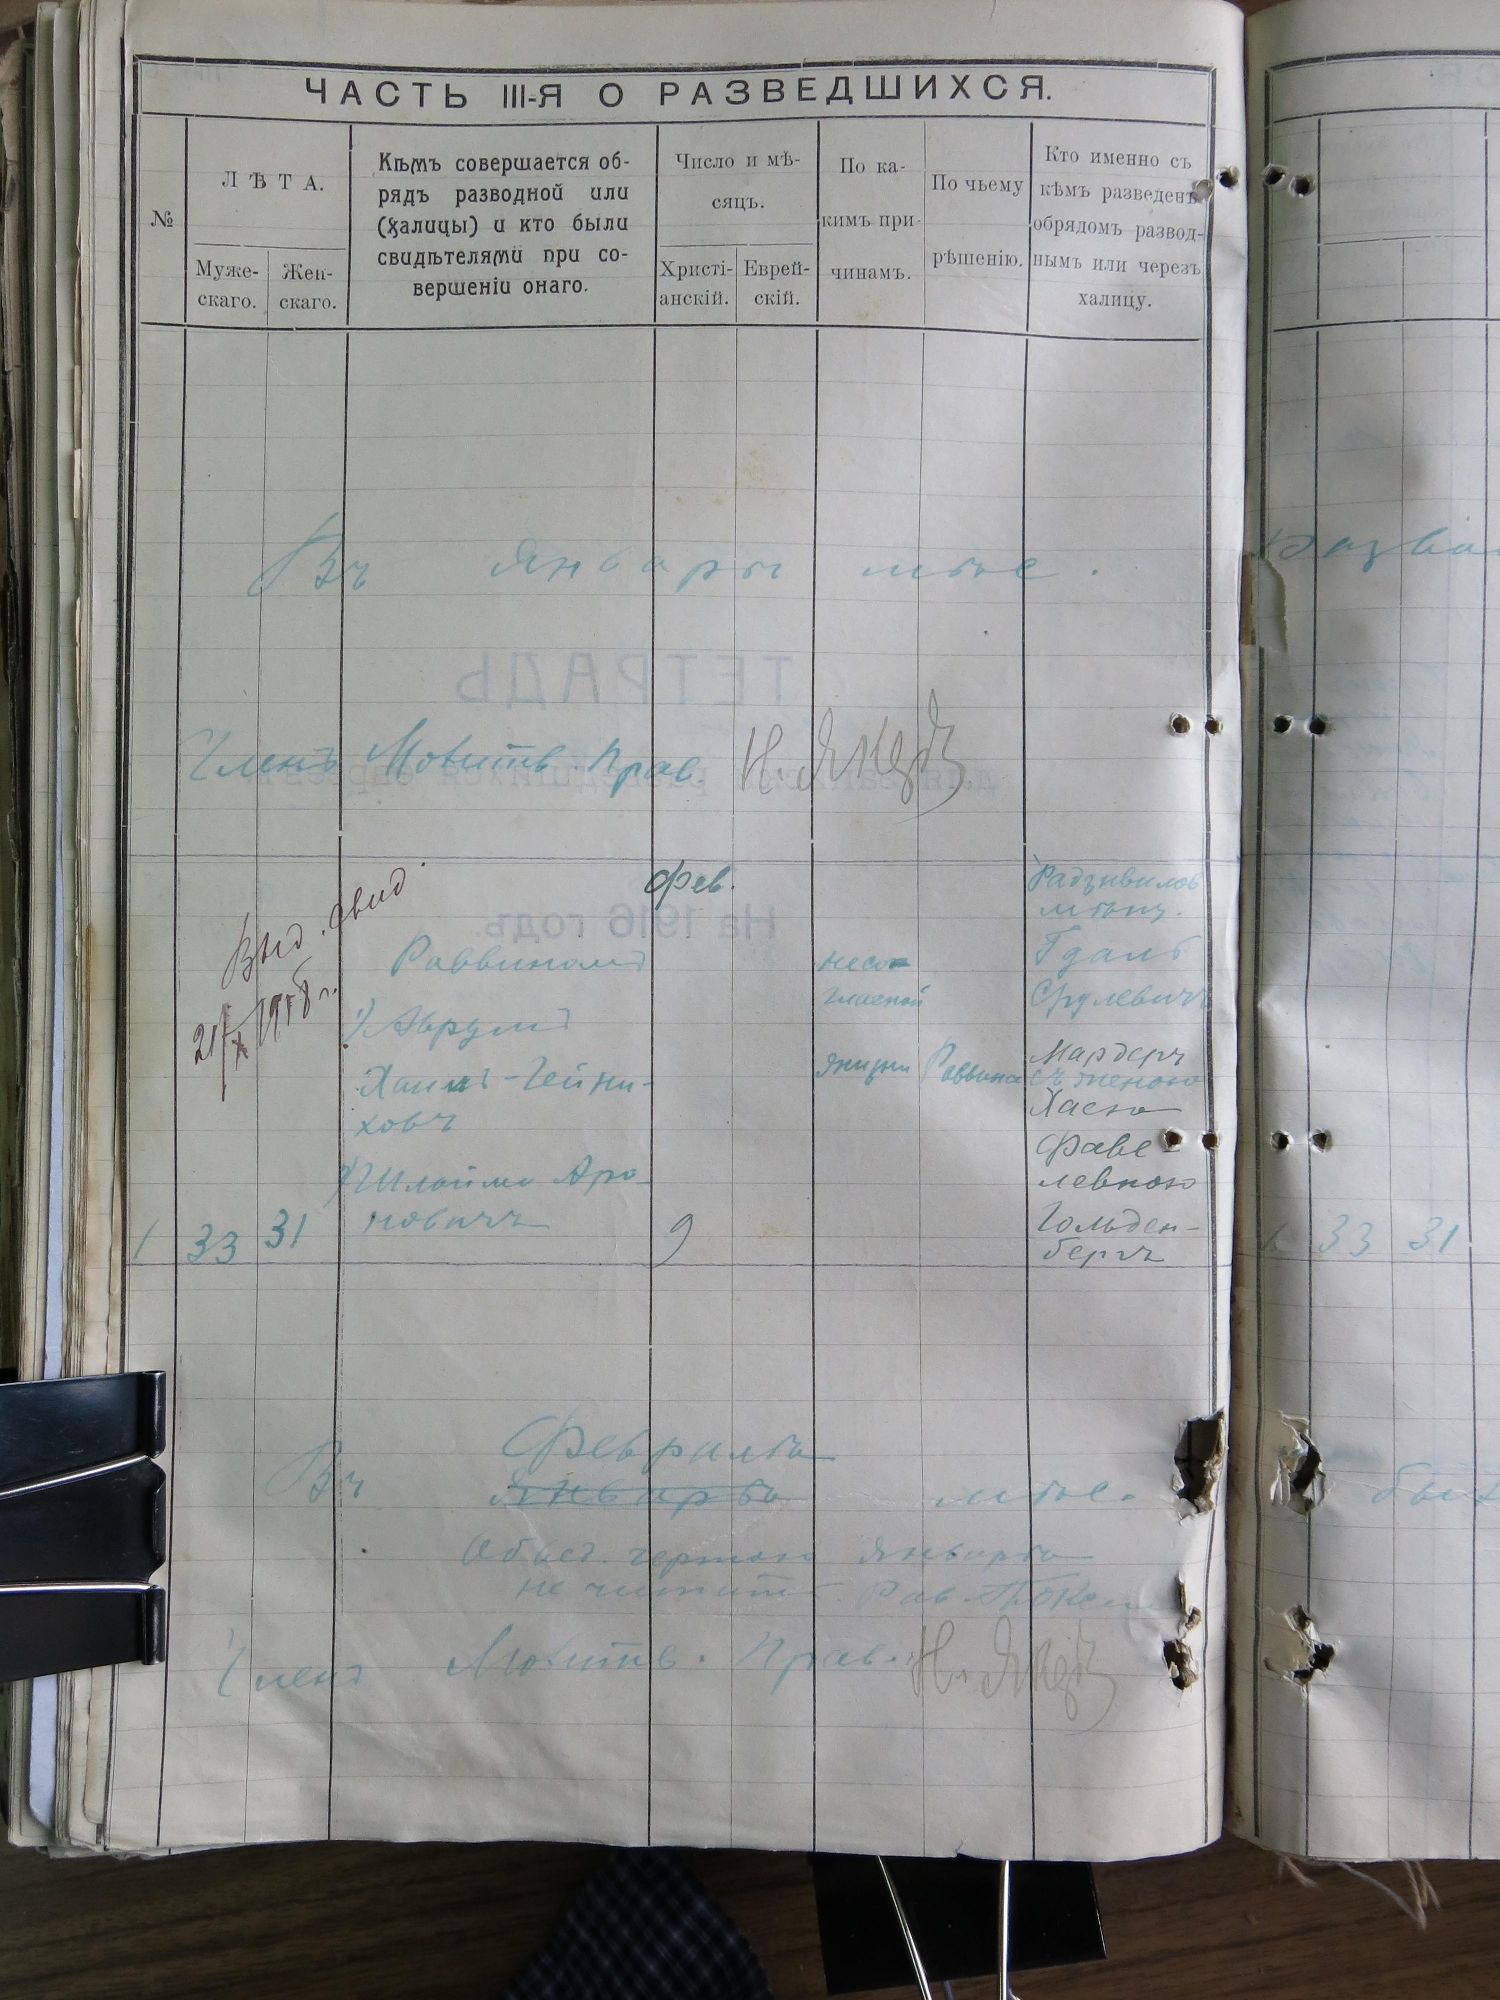 ЧАСТЬ III-Я О РАЗВЕДШИХСЯ.
№
ЛѢТА.
Муже-
скаго.
Жен-
скаго.
Кѣмъ совершается об-
рядъ разводной или
(халицы) и кто были
свидѣтелями при со-
вершеніи онаго.
Число и мѣ-
сяцъ.
Христі-
анскій.
Еврей-
скій.
По ка-
кимъ при-
чинамъ.
По чьему
рѣшенію.
Кто именно съ
кѣмъ разведенъ
обрядомъ развод-
нымъ или черезъ
халицу.
Въ январѣ м-цѣ.
Членъ Молитв. Прав.
Выд. свид.
21/X 1918 г.
1
33
31
Раввиномъ
1) Аврумъ
Хаимъ-Гейни-
ховъ
2) Шлойма Аро-
новичъ
Фев.
9
несо-
гласной
жизни
Раввина
Радзивилов
мѣщ.
Гдаль
Срулевичъ
Мардеръ
съ женою
Хасею
Фаве-
левною
Гольден-
бергъ
Въ Февралѣ
январѣ м-цѣ.
января
не читать
Членъ Молитв. Прав.
1 33 31